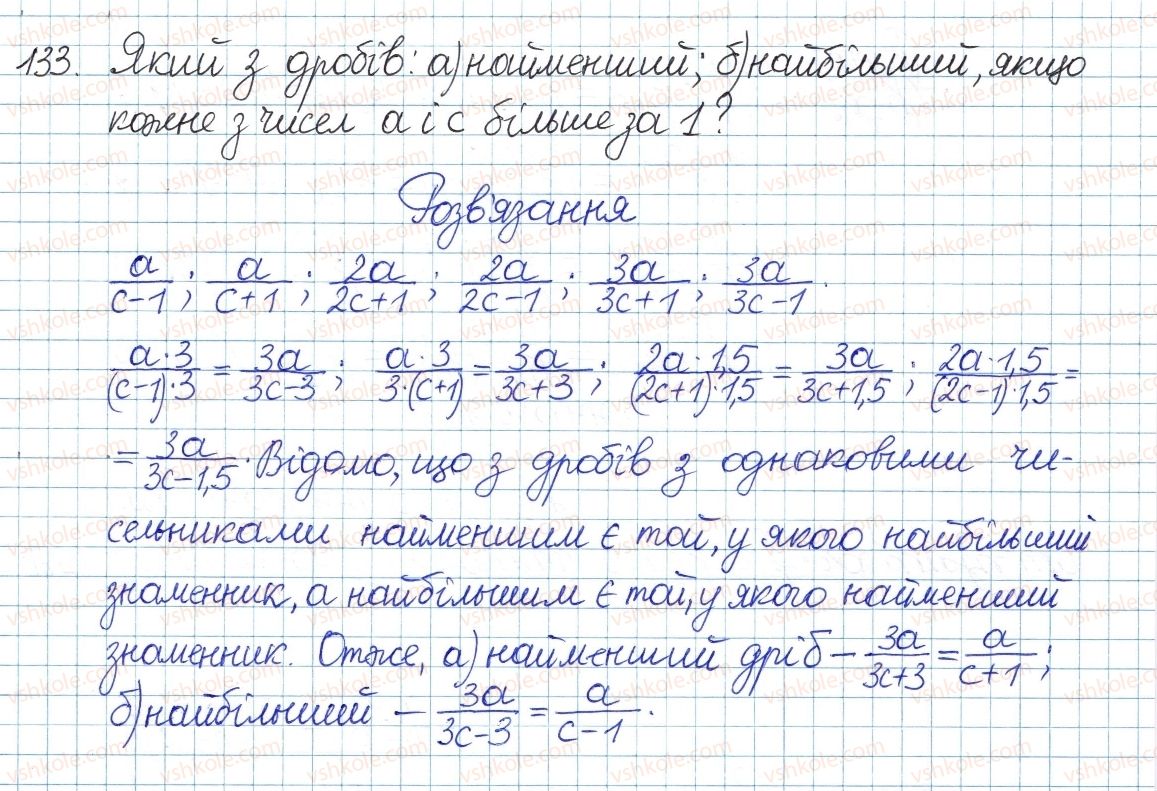 133. Який з дробів: а) найменший; б) найбільший, якщо
кожне з чисел a і c більше за 1?
Розв'язання
a/(c-1); a/(c+1); 2a/(2c+1); 2a/(2c-1); 3a/(3c+1); 3a/(3c-1).
(a·3)/((c-1)·3) = 3a/(3c-3); (a·3)/(3·(c+1)) = 3a/(3c+3); (2a·1,5)/((2c+1)·1,5) = 3a/(3c+1,5); (2a·1,5)/((2c-1)·1,5) =
= 3a/(3c-1,5). Відомо, що з дробів з однаковими чи-
сельниками найменшим є той, у якого найбільший
знаменник, а найбільшим є той, у якого найменший
знаменник. Отже, а) найменший дріб – 3a/(3c+3) = a/(c+1);
б) найбільший – 3a/(3c-3) = a/(c-1).
vshkole.com